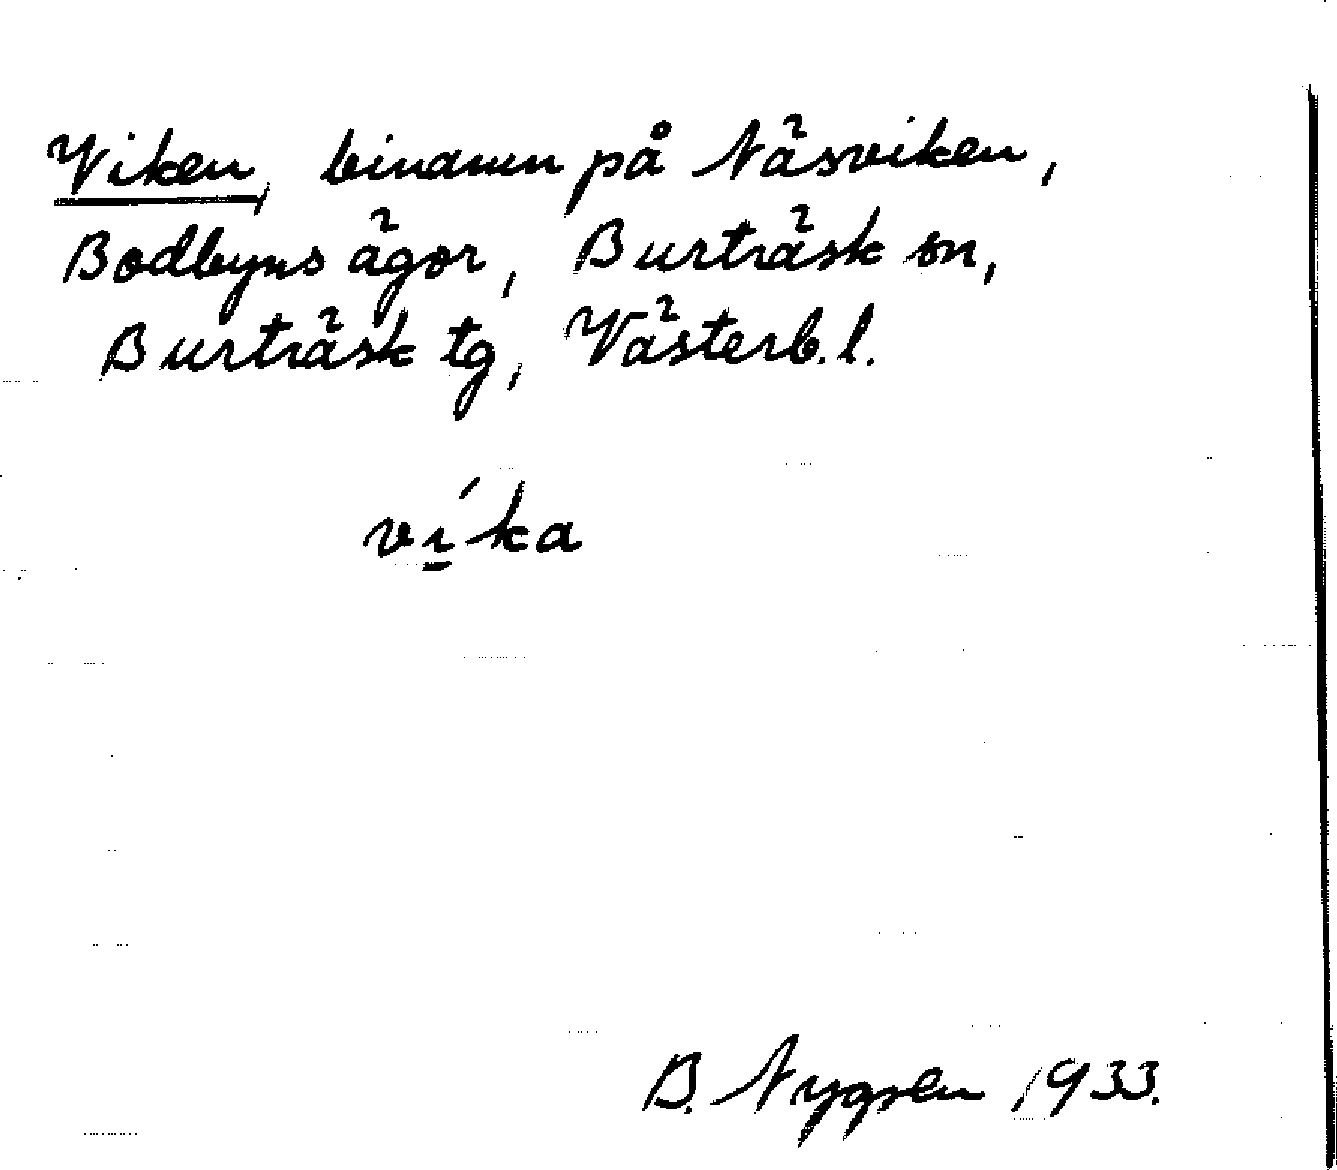 Viken, binamn på Näsviken,
Bodbyns ägor, Burträsk sn,
Burträsk tg, Västerb. l.
ví̱ka
B. Nygren 1933.